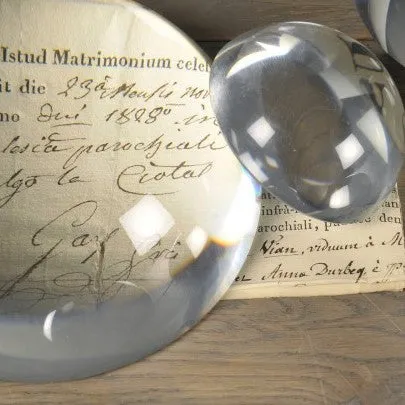 Istud Matrimonium cele
it die 23ª Mensis nov
no dni 1828º in
lesia parochiali
ulgo la Ciotat
infra
arochiali, pariter
Vian, viduum à M
et Anna Durbec è